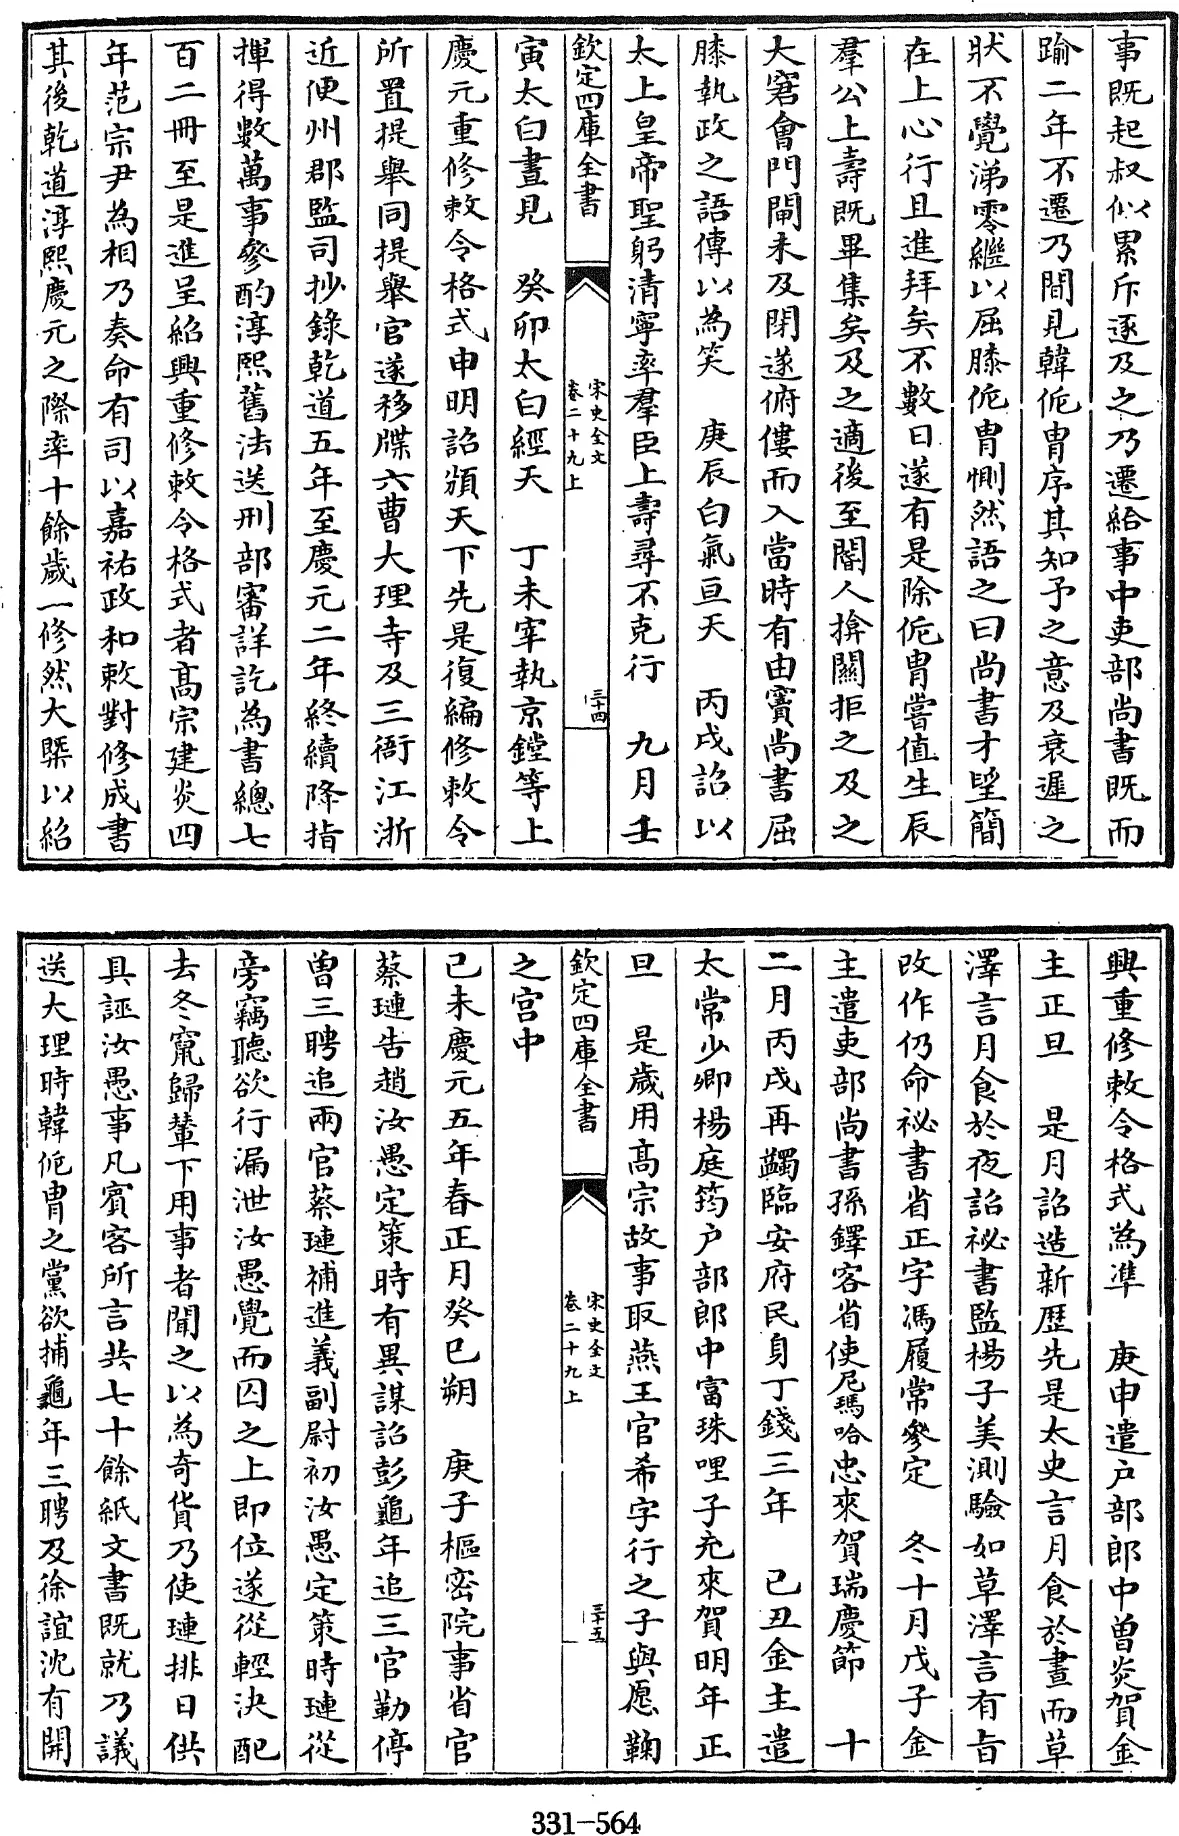 事既起叔似累斥逐及之乃遷給事中吏部尚書既而
踰二年不遷乃間見韓侂胄序其知予之意及衰遲之
狀不覺涕零繼以屈膝侂胄惻然語之曰尚書才望簡
在上心行且進拜矣不數日遂有是除侂胄嘗值生辰
羣公上壽既畢集矣及之適後至閽人揜關拒之及之
大窘會門閘未及閉遂俯僂而入當時有由竇尚書屈
膝執政之語傳以為笑　庚辰白氣亘天　丙戌詔以
太上皇帝聖躬清寧率羣臣上壽尋不克行　九月壬
欽定四庫全書
宋史全文
卷二十九上
三十四
寅太白晝見　癸卯太白經天　丁未宰執京鏜等上
慶元重修敕令格式申明詔頒天下先是復編修敕令
所置提舉同提舉官遂移牒六曹大理寺及三衙江浙
近便州郡監司抄錄乾道五年至慶元二年終續降指
揮得數萬事參酌淳熙舊法送刑部審詳訖為書總七
百二冊至是進呈紹興重修敕令格式者高宗建炎四
年范宗尹為相乃奏命有司以嘉祐政和敕對修成書
其後乾道淳熙慶元之際率十餘歲一修然大槩以紹
興重修敕令格式為準　庚申遣户部郎中曾炎賀金
主正旦　是月詔造新歴先是太史言月食於晝而草
澤言月食於夜詔祕書監楊子美測驗如草澤言有旨
改作仍命祕書省正字馮履常參定　冬十月戊子金
主遣吏部尚書孫鐸客省使尼瑪哈忠來賀瑞慶節　十
二月丙戌再蠲臨安府民身丁錢三年　己丑金主遣
太常少卿楊庭筠户部郎中富珠哩子充來賀明年正
旦　是歲用高宗故事取燕王宫希字行之子與愿鞠
欽定四庫全書
宋史全文
卷二十九上
三十五
之宫中
己未慶元五年春正月癸巳朔　庚子樞密院事省官
蔡璉告趙汝愚定策時有異謀詔彭龜年追三官勒停
曾三聘追兩官蔡璉補進義副尉初汝愚定策時璉從
旁竊聽欲行漏泄汝愚覺而囚之上即位遂從輕決配
去冬竄歸輦下用事者聞之以為奇貨乃使璉排日供
具誣汝愚事凡賓客所言共七十餘紙文書既就乃議
送大理時韓侂胄之黨欲捕龜年三聘及徐誼沈有開
331-564